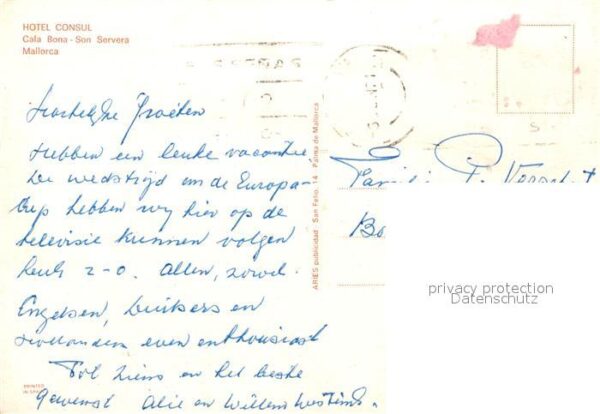 HOTEL CONSUL
Cala Bona - Son Servera
Mallorca
Hartelijke Groeten
Hebben een leuke vacantie
De wedstrijd om de Europa-
Cup hebben wij hier op de
televisie kunnen volgen
leuk 2-0. Allen, zowel
Engelsen, Duitsers en
Hollanders even enthousiast
Tot ziens en het beste
gewenst Alie en Willem
ARIES publicidad San Felio, 14 Palma de Mallorca
Familie P.
Bo
privacy protection
Datenschutz
PRINTED
IN SPAIN